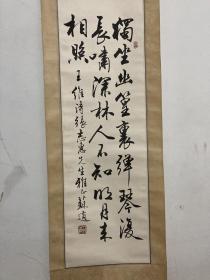 獨坐幽篁裏彈琴復
長嘯深林人不知明月來
相照 王維詩 張志惠先生雅正 蘇適